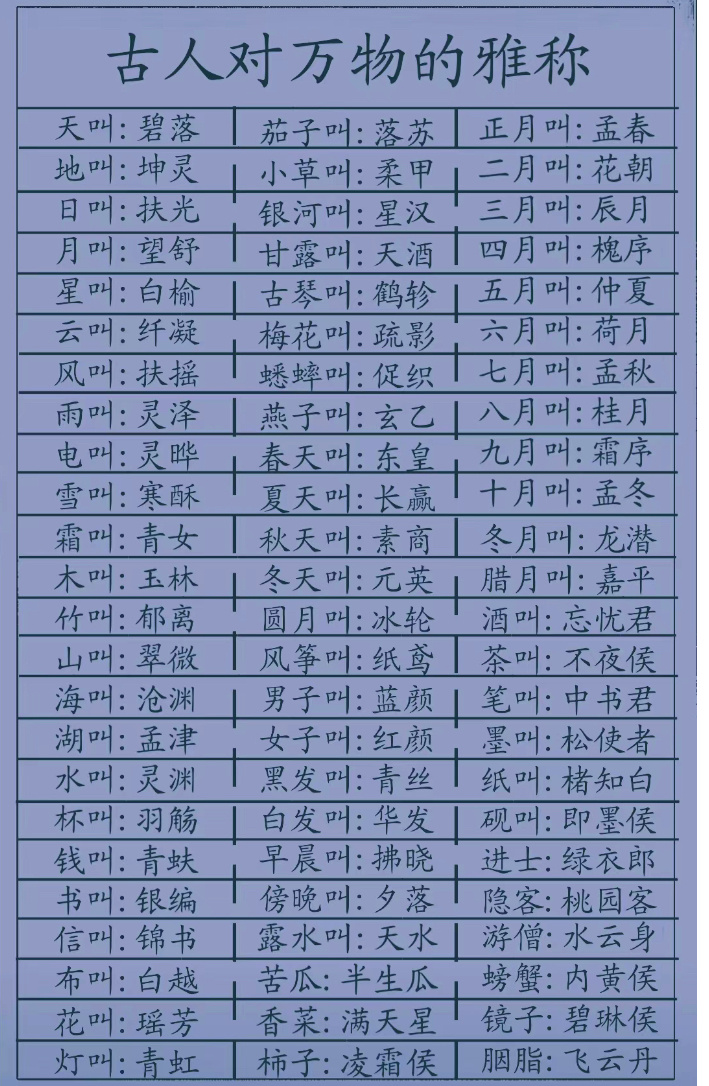 古人对万物的雅称
天叫:碧落 茄子叫:落苏 正月叫:孟春
地叫:坤灵 小草叫:柔甲 二月叫:花朝
日叫:扶光 银河叫:星汉 三月叫:辰月
月叫:望舒 甘露叫:天酒 四月叫:槐序
星叫:白榆 古琴叫:鹤轸 五月叫:仲夏
云叫:纤凝 梅花叫:疏影 六月叫:荷月
风叫:扶摇 蟋蟀叫:促织 七月叫:孟秋
雨叫:灵泽 燕子叫:玄乙 八月叫:桂月
电叫:灵晔 春天叫:东皇 九月叫:霜序
雪叫:寒酥 夏天叫:长赢 十月叫:孟冬
霜叫:青女 秋天叫:素商 冬月叫:龙潜
木叫:玉林 冬天叫:元英 腊月叫:嘉平
竹叫:郁离 圆月叫:冰轮 酒叫:忘忧君
山叫:翠微 风筝叫:纸鸢 茶叫:不夜侯
海叫:沧渊 男子叫:蓝颜 笔叫:中书君
湖叫:孟津 女子叫:红颜 墨叫:松使者
水叫:灵渊 黑发叫:青丝 纸叫:楮知白
杯叫:羽觞 白发叫:华发 砚叫:即墨侯
钱叫:青蚨 早晨叫:拂晓 进士:绿衣郎
书叫:银编 傍晚叫:夕落 隐客:桃园客
信叫:锦书 露水叫:天水 游僧:水云身
布叫:白越 苦瓜:半生瓜 螃蟹:内黄侯
花叫:瑶芳 香菜:满天星 镜子:碧琳侯
灯叫:青虹 柿子:凌霜侯 胭脂:飞云丹